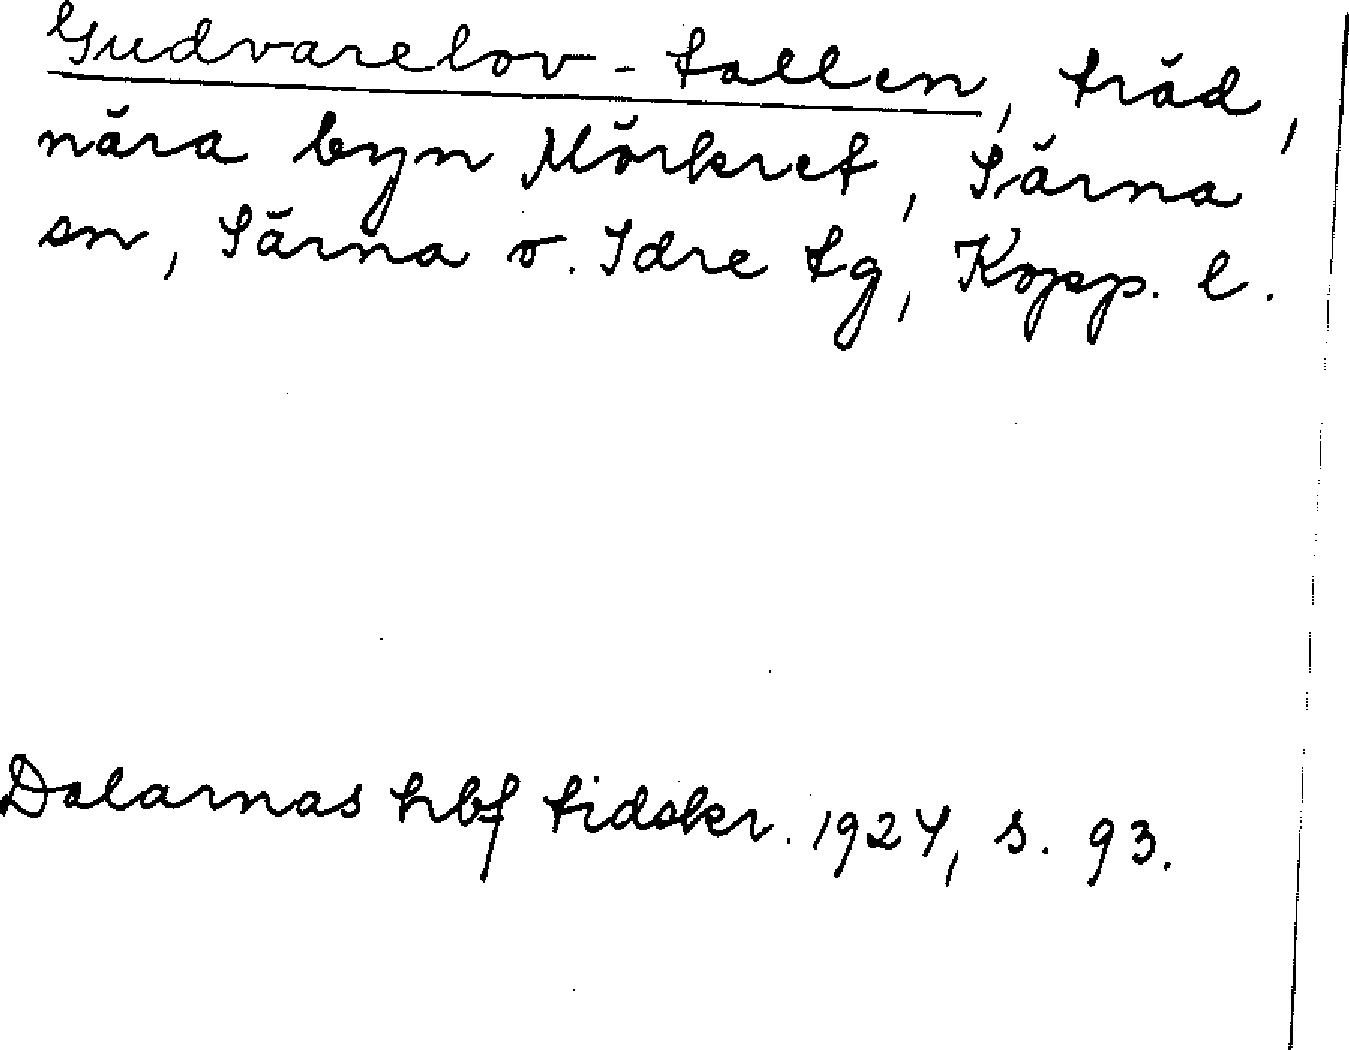 Gudvarelov-tallen, träd,
nära byn Mörkret, Särna
sn, Särna o. Idre tg, Kopp. l.
Dalarnas hbf tidskr. 1924, s. 93.